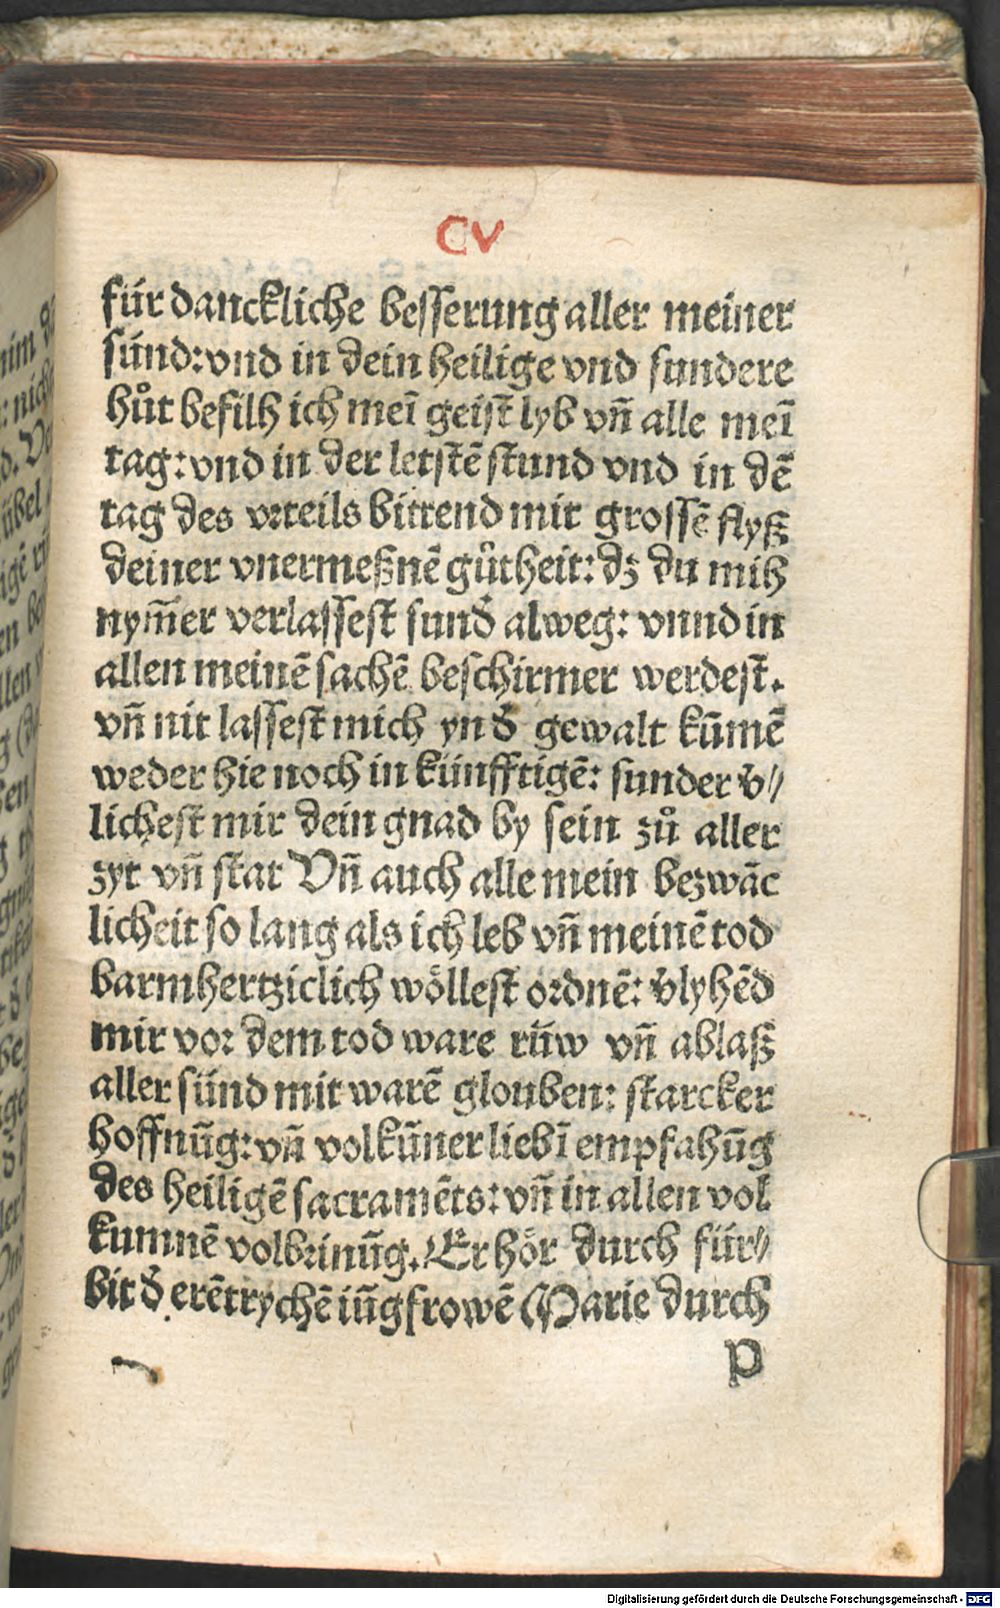 CV
für danckliche besserung aller meiner
sünd: vnd in dein heilige vnd sundere
hůt befilh ich meī geist lyb vñ alle meī
tag: vnd in der letstē stund vnd in dē
tag des vrteils bittend mit grossē flyß
deiner vnermeßnē gůtheit: dz du mih
nym̄er verlassest sund̄ alweg: vnnd in
allen meinē sachē beschirmer werdest.
vñ nit lassest mich yn d̄ gewalt kūmē
weder hie noch in künfftigē: sunder v̄//
lichest mir dein gnad by sein zů aller
zyt vñ stat Vñ auch alle mein bezwāc
licheit so lang als ich leb vñ meinē tod
barmhertziclich wöllest ordnē: v̄lyhēd
mir vor dem tod ware rüw vñ ablaß
aller sünd mit warē glouben: starcker
hoffnūg: vñ volkūner lieb ī empfahūg
des heiligē sacramēts: vñ in allen vol
kumnē volbrinūg. Er hör durch für//
bit d̄ erētrychē iūgfrowē Marie durch
p
Digitalisierung gefördert durch die Deutsche Forschungsgemeinschaft - DFG